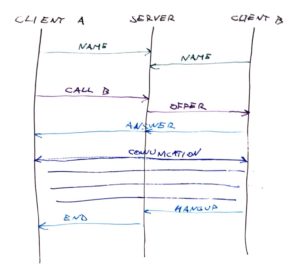 CLIENT A SERVER CLIENT B
NAME
NAME
CALL B
OFFER
ANSWER
COMUNICATION
HANGUP
END